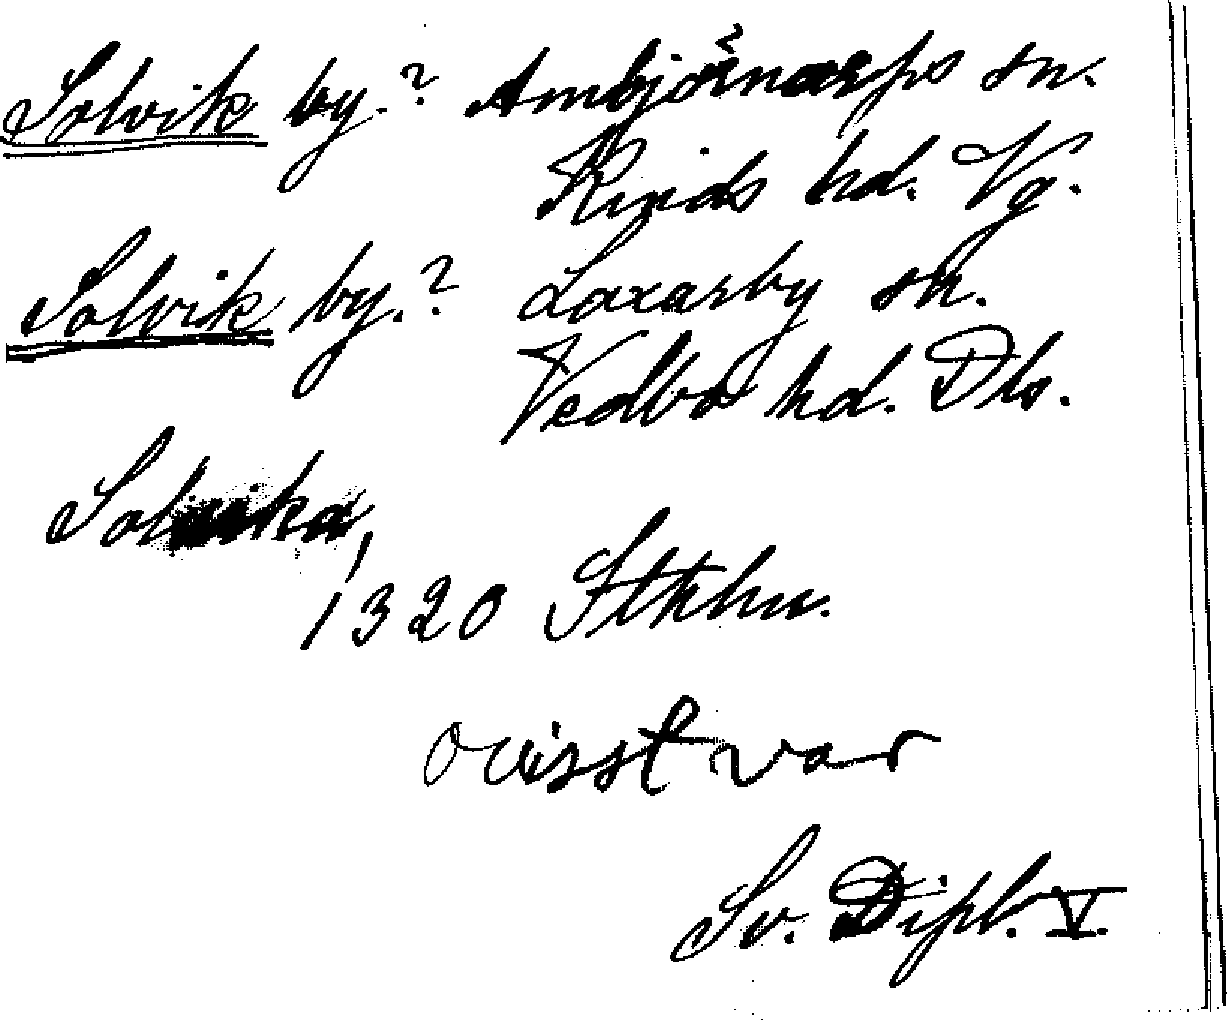 Solvik by.? Ambjörnarps sn.
Kinds hd. Vg.
Solvik by.? Laxarby sn.
Vedbo hd. Dls.
Solvika,
1320 Sthhu.
ovisst var
Sv. Dipl. V.